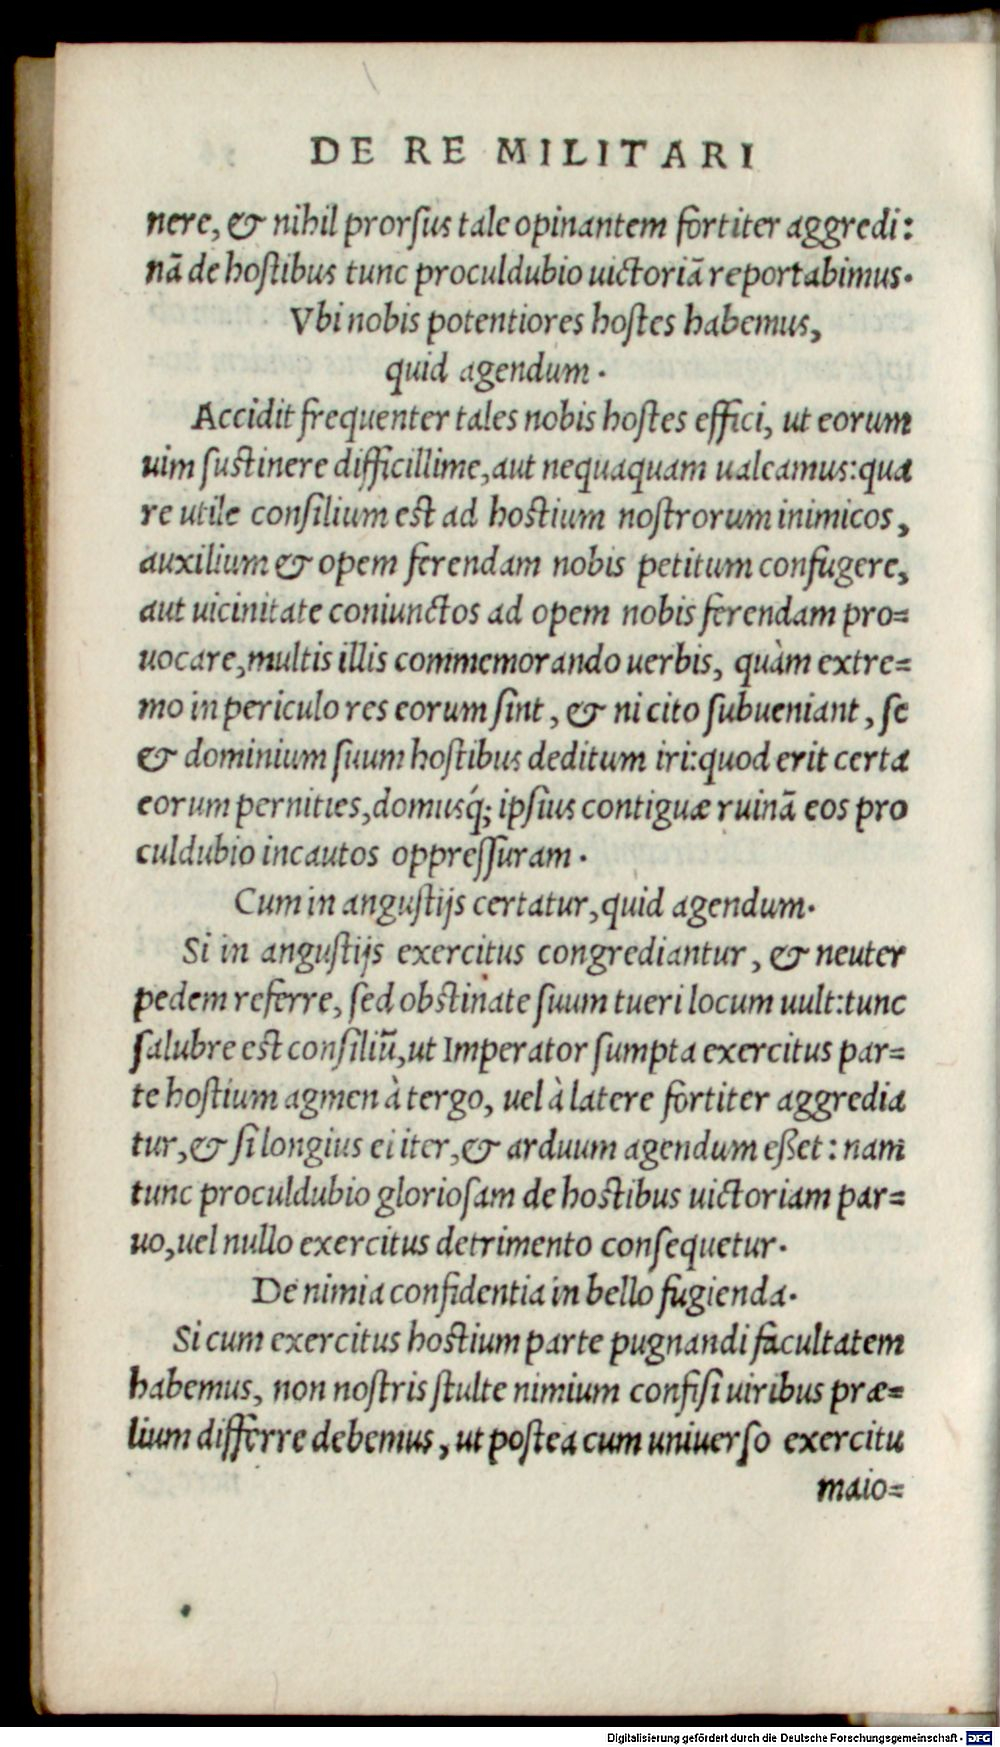 DE RE MILITARI
nere, & nihil prorſus tale opinantem fortiter aggredi:
nā de hoſtibus tunc proculdubio uictoriā reportabimus.
Vbi nobis potentiores hoſtes habemus,
quid agendum.
Accidit frequenter tales nobis hoſtes effici, ut eorum
uim ſustinere difficillime, aut nequaquam ualeamus: qua
re utile conſilium est ad hostium noſtrorum inimicos,
auxilium & opem ferendam nobis petitum confugere,
aut uicinitate coniunctos ad opem nobis ferendam pro=
uocare, multis illis commemorando uerbis, quàm extre=
mo in periculo res eorum ſint, & ni cito ſubueniant, ſe
& dominium ſuum hoſtibus deditum iri: quod erit certa
eorum pernities, domusq́; ipſius contiguæ ruinā eos pro
culdubio incautos oppreſſuram.
Cum in anguſtijs certatur, quid agendum.
Si in anguſtijs exercitus congrediantur, & neuter
pedem referre, ſed obstinate ſuum tueri locum uult: tunc
ſalubre est conſiliū, ut Imperator ſumpta exercitus par=
te hoſtium agmen à tergo, uel à latere fortiter aggredia
tur, & ſi longius ei iter, & arduum agendum eßet: nam
tunc proculdubio glorioſam de hostibus uictoriam par=
uo, uel nullo exercitus detrimento conſequetur.
De nimia confidentia in bello fugienda.
Si cum exercitus hostium parte pugnandi facultatem
habemus, non noſtris ſtulte nimium confiſi uiribus præ=
lium differre debemus, ut poſtea cum uniuerſo exercitu
maio=
Digitalisierung gefördert durch die Deutsche Forschungsgemeinschaft - DFG